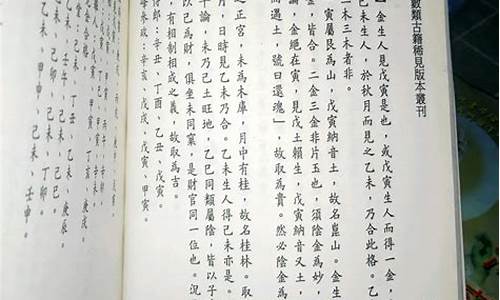 數類古籍稀見版本叢刊
金生人見戊寅是也，或戊寅生人而得一金，
己未生人，於秋月而見之乙未，乃合此格。乙
一木三木者非。
寅屬艮為山，戊寅納音土，故名崑山。金生
金，皆合。二金三金非片玉也，須陰金為妙，
論，金絕在寅，見戊土賴生，戊寅納音又土，
而遇土，號曰還魂」，故取為貴。然必陰金為
之正宮，未為木庫，月中有桂，故名桂林。取
月，日時見乙未乃合。乙未生人得己未亦是。
干論，未乃己土旺地，乙己同類屬陰，皆以子
以己為財，俱坐未同窠，是財官同一位也。況
，有相制相成之義，故取為吉。
侍郎：辛亥、丁酉、乙丑、戊寅。
母朱政：辛亥、戊戌、戊寅、甲寅。
己未、丁丑、乙未、庚辰
壬午、己未、己巳。
己卯、己未、丁卯。
己未、甲申、己未、壬申。